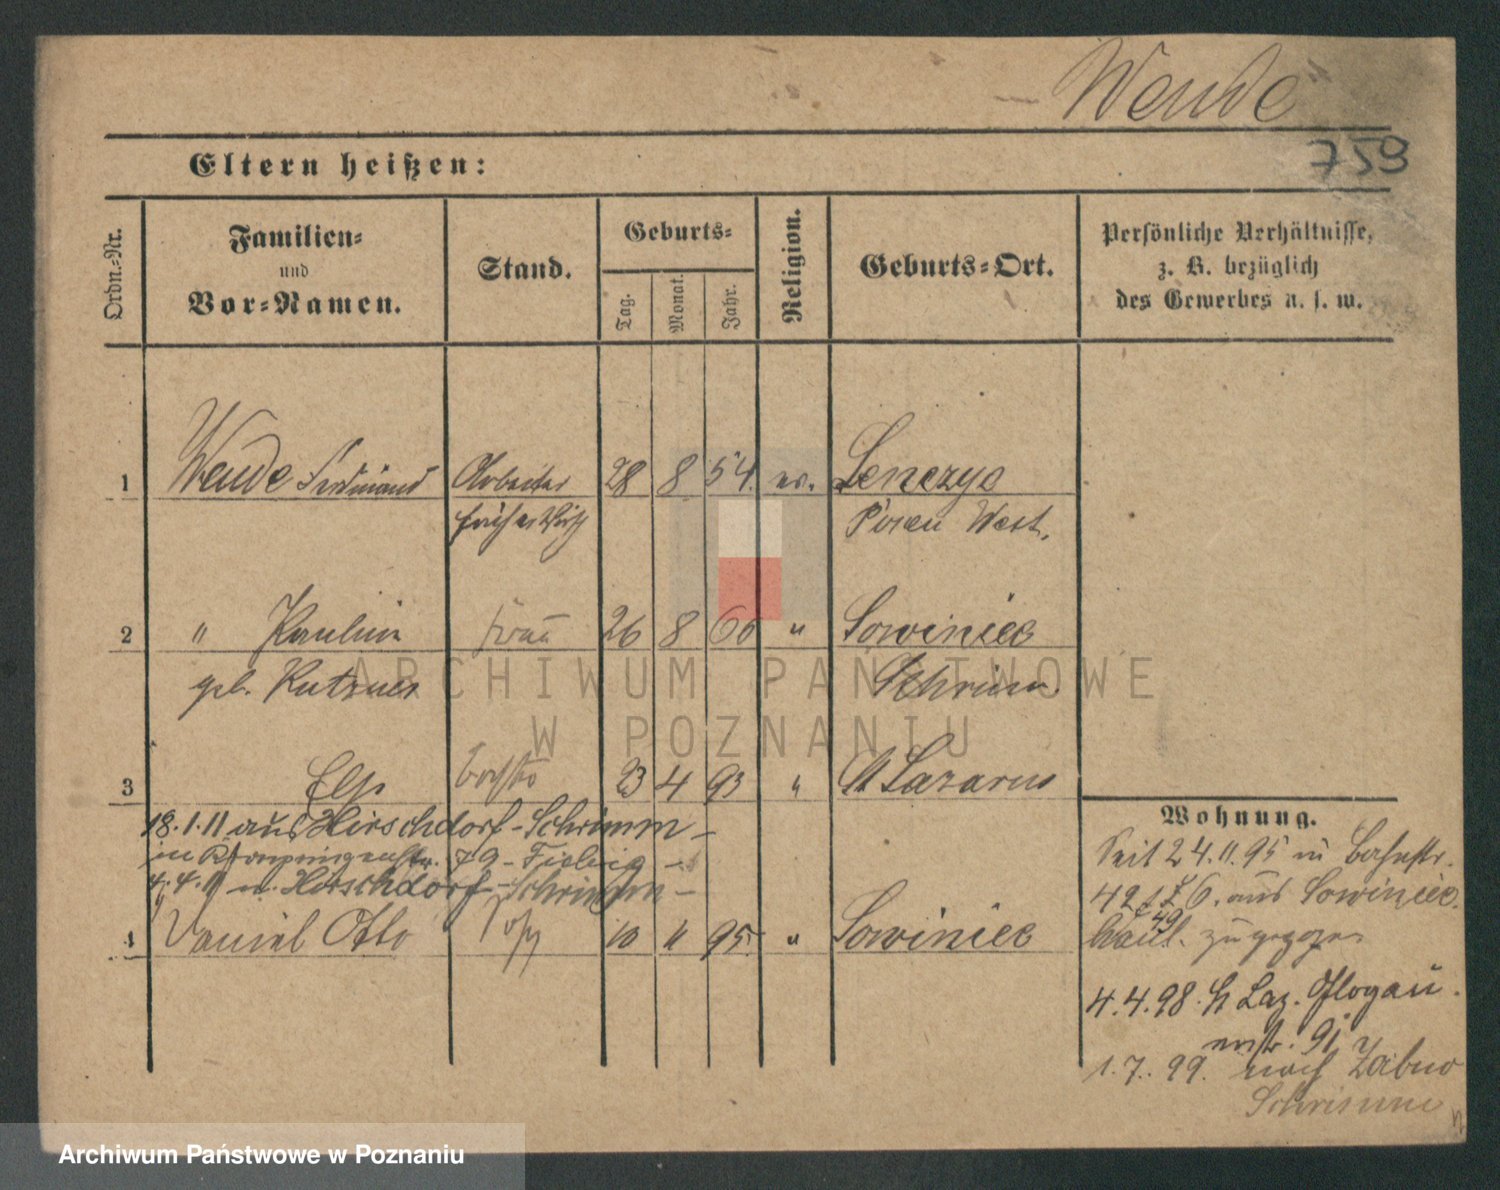 Wende
759
Eltern heißen:
Ordn.-Nr.
Familien-
und
Vor-Namen.
Stand.
Geburts-
Tag.
Monat.
Jahr.
Religion.
Geburts-Ort.
Persönliche Verhältnisse,
z. B. bezüglich
des Gewerbes u. s. w.
1 Wende Ferdinand Arbeiter 28 8 54. ev. Lenczyc
früher Posen West.
2 " Paulin Frau 26 8 66 " Sowiniec
geb. Kutzner Schrimm
3 Else Tochter 23 4 93 " St Lazarus
18.1.11 aus Hirschdorf-Schrimm-
in Kronprinzenstr. 79-
4.4.11 n. Hirschdorf-Schrimm-
4 Daniel Otto Sohn 10 11 95 " Sowiniec
Wohnung.
Seit 24.11.95 in Bahnstr.
42 aus Sowiniec
49
zugezogen
4.4.98. St Laz. Glogau
erstr. 91
1.7.99. nach Zabno
Schrimm
ARCHIWUM PAŃSTWOWE
W POZNANIU
Archiwum Państwowe w Poznaniu